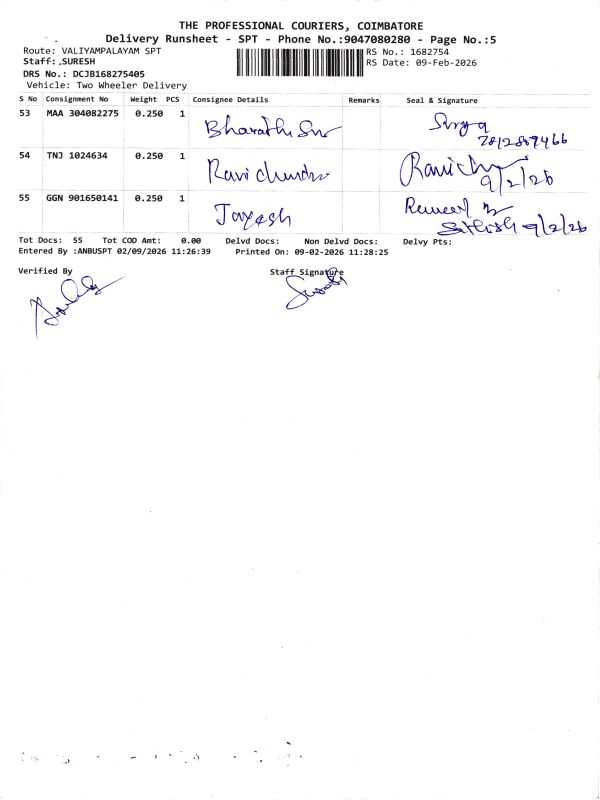 THE PROFESSIONAL COURIERS, COIMBATORE
Delivery Runsheet - SPT - Phone No.:9047080280 - Page No.:5
Route: VALIYAMPALAYAM SPT
RS No.: 1682754
Staff: .SURESH
RS Date: 09-Feb-2026
DRS No.: DCJB168275405
Vehicle: Two Wheeler Delivery
S No Consignment No Weight PCS Consignee Details Remarks Seal & Signature
53 MAA 304082275 0.250 1 Bharathi Surya
54 TNJ 1024634 0.250 1 Ravichandra Ravich 9/2/26
55 GGN 901650141 0.250 1 Jayesh
Sathish 9/2/26
Tot Docs: 55 Tot COD Amt: 0.00 Delvd Docs: Non Delvd Docs: Delvy Pts:
Entered By :ANBUSPT 02/09/2026 11:26:39 Printed On: 09-02-2026 11:28:25
Verified By Staff Signature
Suresh